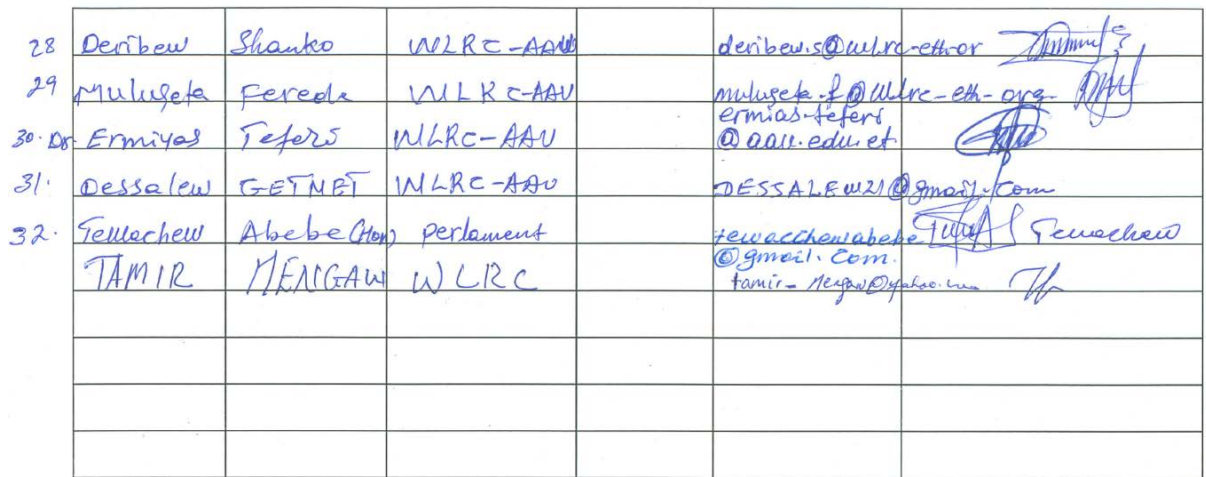 28 Deribew Shanko WLRC-AAU deribew.s@wlrc-eth.or
29 Mulugeta Fereda WLRC-AAU mulugeta.f@wlrc-eth-org
30. Dr. Ermiyas Teferi WLRC-AAU ermias.teferi
@aau.edu.et
31. Dessalew GETNET WLRC-AAU DESSALEW21@gmail.com
32. Tewachew Abebe (Hon) Perlament tewacchewabebe Tewachew
@gmail.com.
TAMIR MENGAW WLRC tamir-